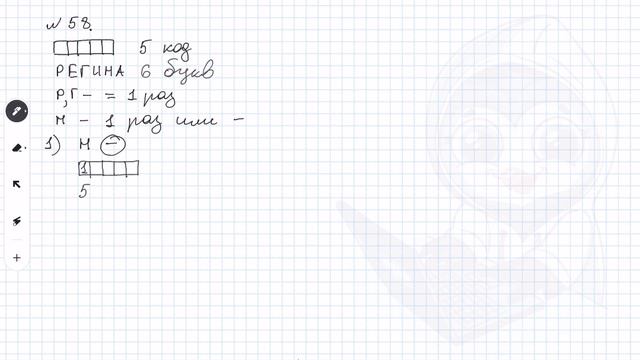 № 58.
5 код
РЕГИНА 6 букв
Р,Г - = 1 раз
Н - 1 раз или -
1) Н -
1
5